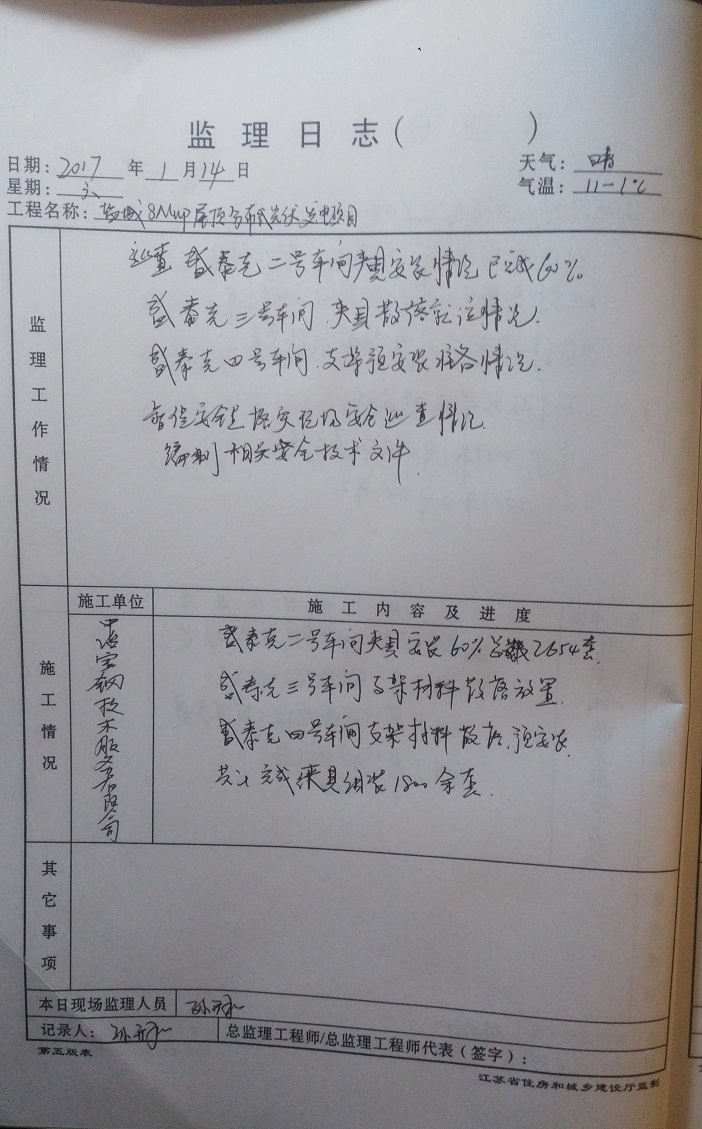 监理日志（ ）
日期：2017年1月14日
天气：晴
星期：六
气温：11-1℃
工程名称：盐城 8Mwp屋顶分布式光伏发电项目
监理工作情况
巡查 盛泰克二号车间夹具安装情况 已完成60%
盛泰克三号车间 夹具散落 情况.
盛泰克四号车间 支架预安装 准备情况.
安全 落实现场安全巡查情况.
编制相关安全技术文件.
施工单位
施工内容及进度
施工情况
宝钢技术服务有限公司
盛泰克二号车间夹具安装60%总数2654套.
盛泰克三号车间支架材料散落放置.
盛泰克四号车间支架材料散落,预安装.
共计完成夹具组装1800余套.
其它事项
本日现场监理人员
记录人：
总监理工程师/总监理工程师代表（签字）：
第五版表
江苏省住房和城乡建设厅监制